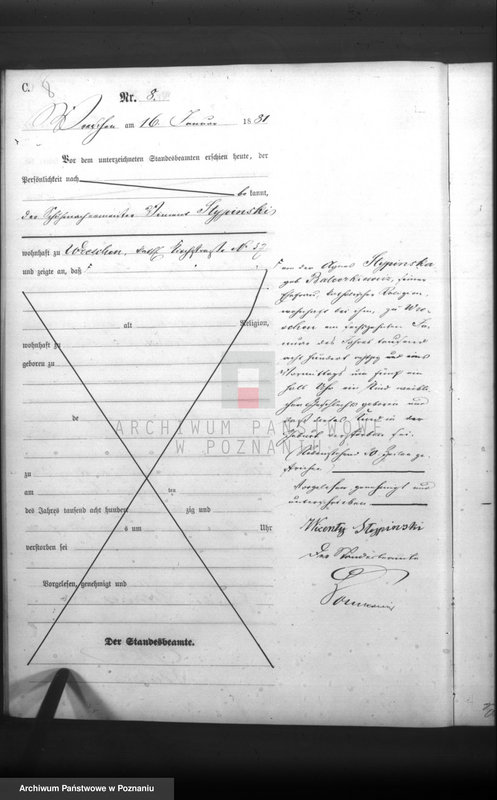 C. 8
Nr. 8.
Wreschen am 16 Januar 1881
Vor dem unterzeichneten Standesbeamten erschien heute, der
Persönlichkeit nach
be kannt,
der Schuhmachermeister Vincent Stypinski
wohnhaft zu Wreschen, kath. Kirchstraße No 57
und zeigte an, daß
alt Religion,
wohnhaft zu
geboren zu
de
zu
am ten
des Jahres tausend acht hundert zig und
s um Uhr
verstorben sei
Vorgelesen, genehmigt und
Der Standesbeamte.
von der Agnes Stypinska
geb. seiner
Ehefrau, katholischer Religion,
wohnhaft bei ihm, zu Wre-
schen am fünfzehnten Ja-
nuar des Jahres tausend
acht hundert achtzig und eins
Vormittags um fünf ein
halb Uhr ein Kind weibli-
chen Geschlechts geboren und
daß dieses Kind in der
Geburt verstorben sei.
Nebenstehend Zeilen ge-
strichen
Vorgelesen genehmigt und
unterschrieben
Wicenty Stypinski
Der Standesbeamte
ARCHIWUM PAŃSTWOWE
W POZNANIU
Archiwum Państwowe w Poznaniu